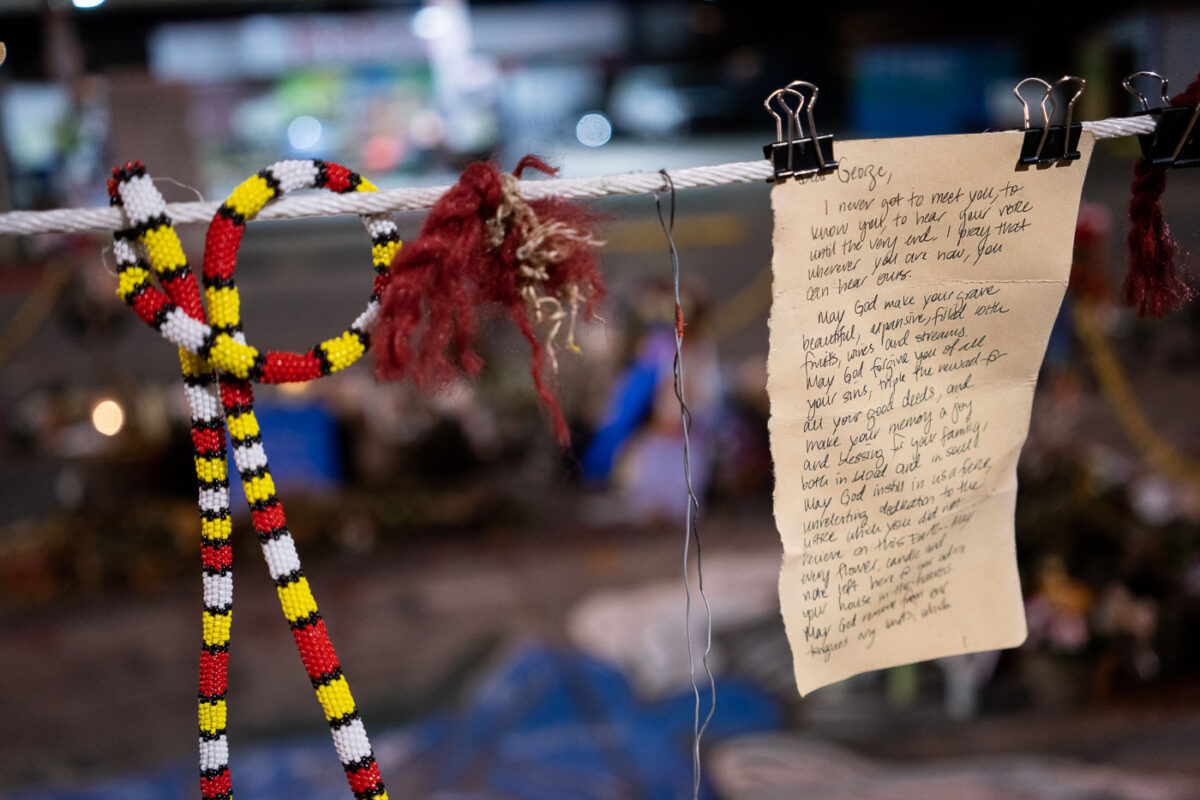 Dear George,
I never got to meet you, to
know you, to hear your voice
until the very end. I pray that
wherever you are now, you
can hear ours.
May God make your grave
beautiful, expansive, filled with
fruits, wines and streams.
May God forgive you of all
your sins, triple the reward for
all your good deeds, and
make your memory a joy
and blessing for your family,
both in blood and in soul.
May God instill in us a fierce,
unrelenting dedication to the
justice which you did not
receive on this Earth. May
every flower, candle and
note left here for you adorn
your house in the heavens.
May God remove from our
tongues any knots, which